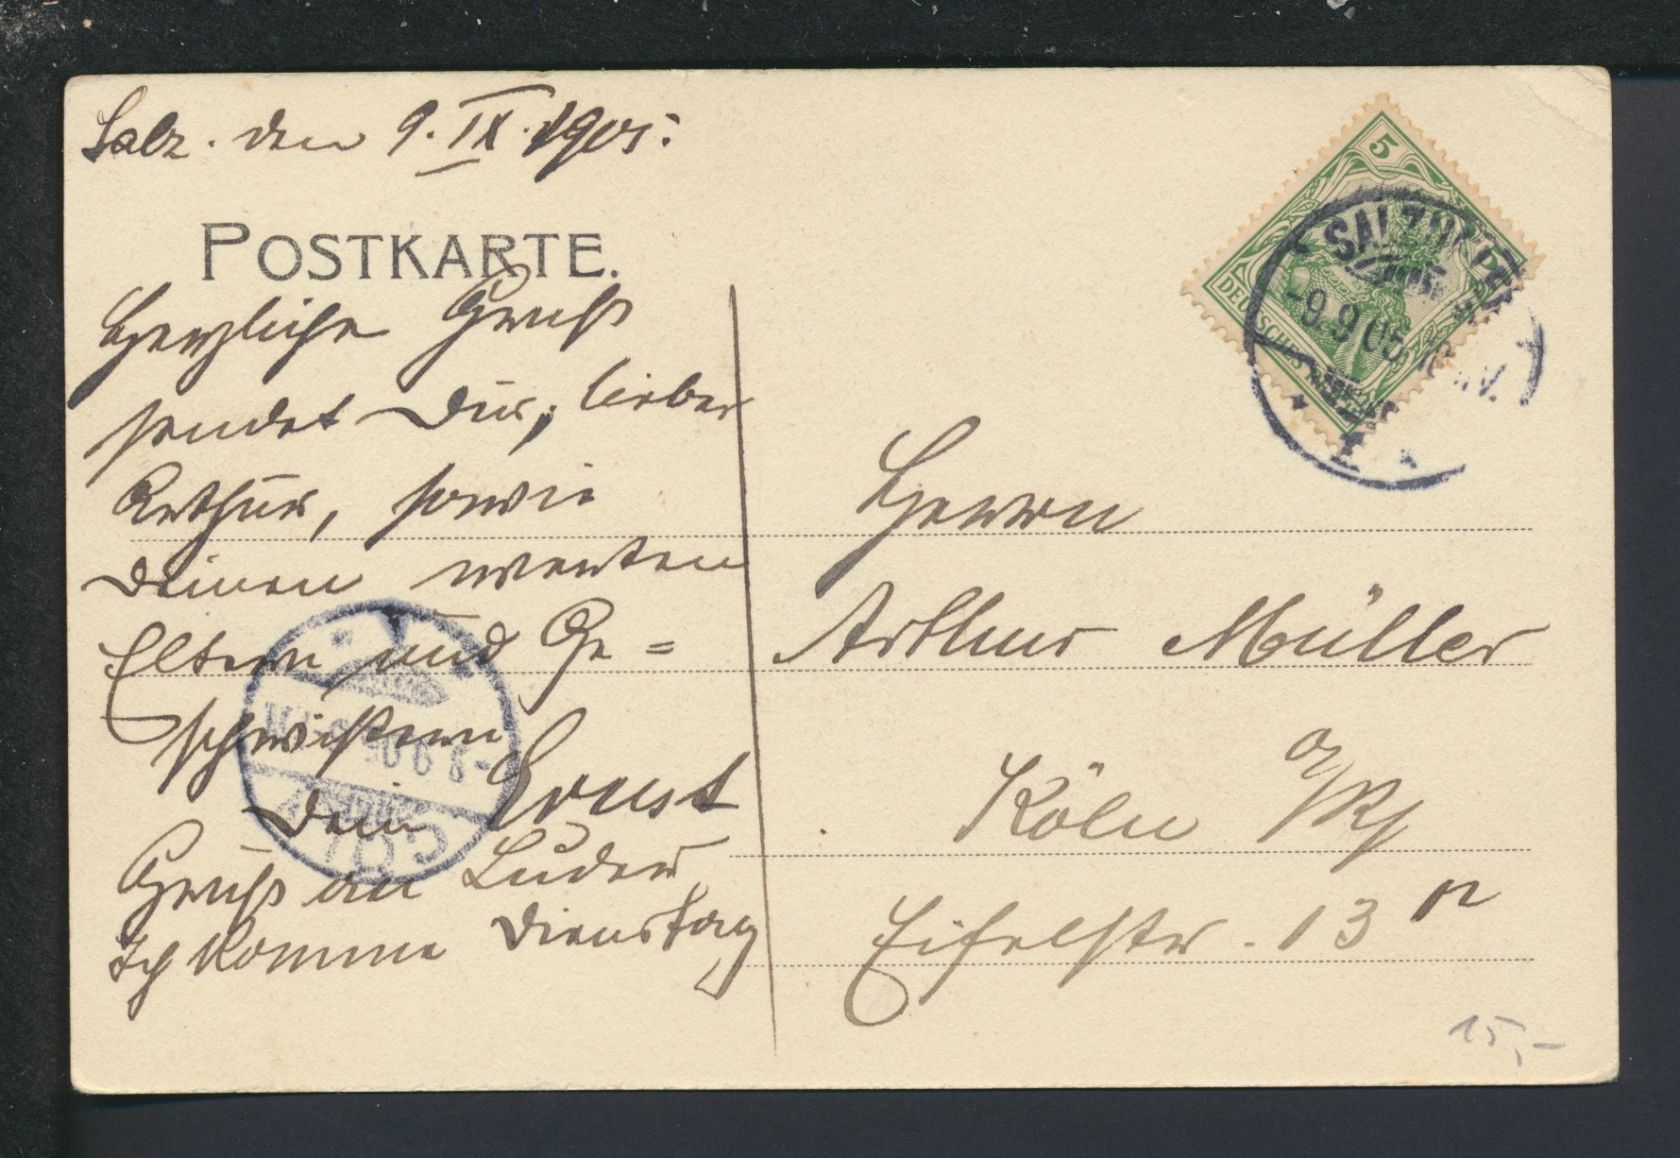 Salz. den 9. IX. 1905.
POSTKARTE.
Herzliche Gruß
sendet Dir, lieber
Arthur, sowie
Deinen werten
Eltern und Ge=
schwistern
Dein Ernst
Gruß an
Ich komme Dienstag
5
DEUTSCHES
SALZUFLEN
-9.9.05
Herrn
Arthur Müller
Köln a/Rh
Eifelstr. 13
CÖLN
15,-